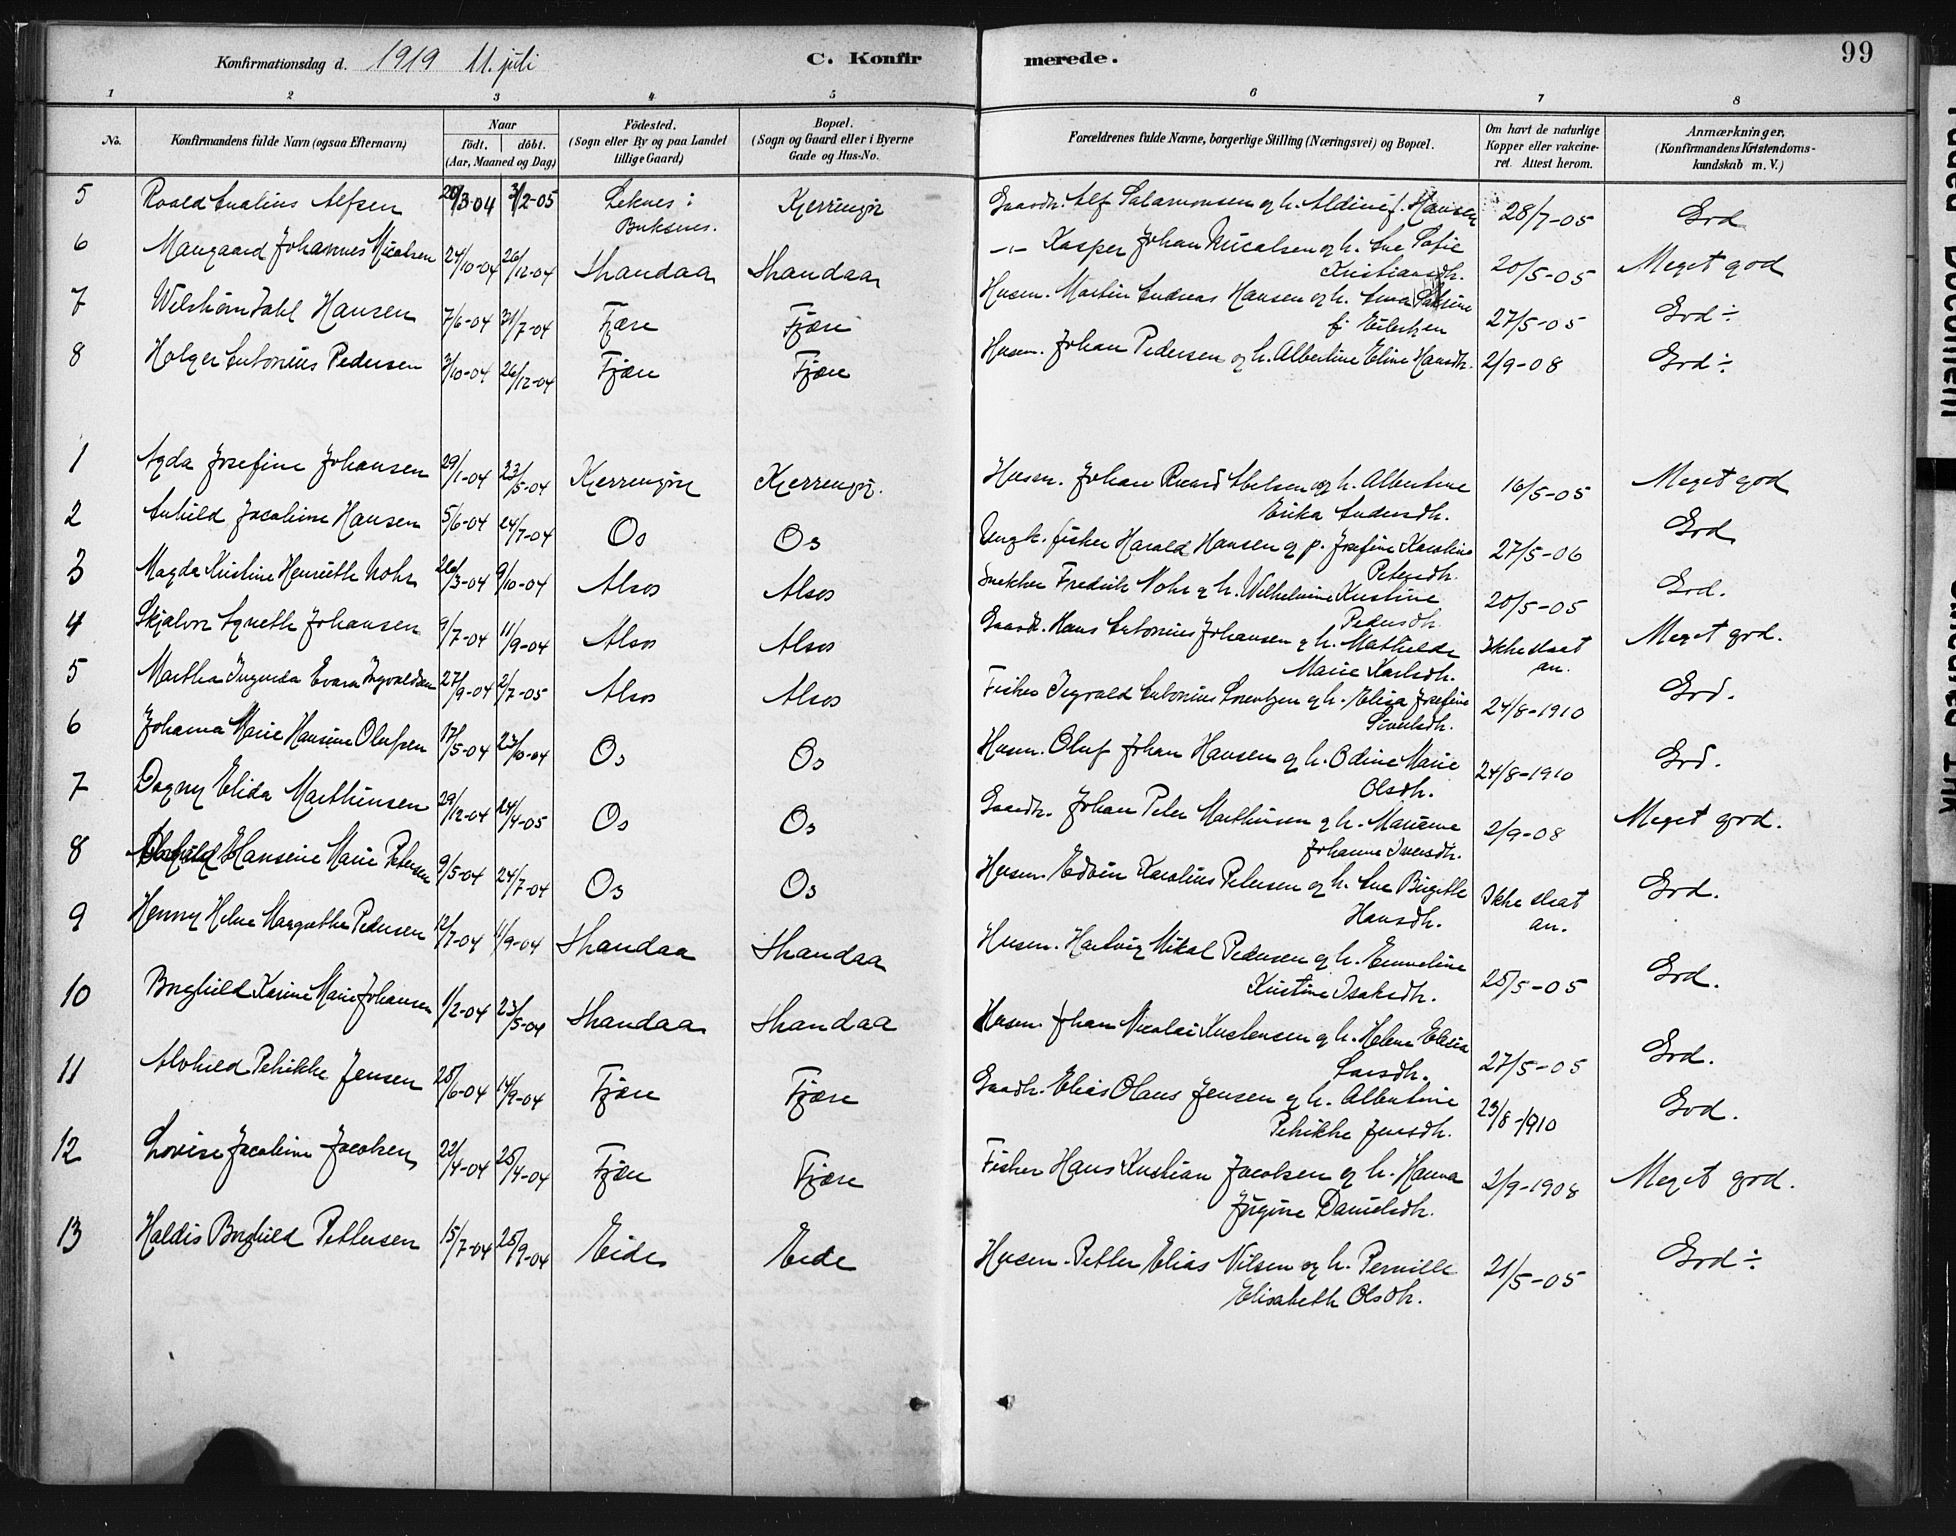 Konfirmationsdag d. 1919 11. juli
C. Konfirmerede.
99
1 2 3 4 5 6 7 8
No. Konfirmandens fulde Navn (ogsaa Efternavn) Naar födt. döbt. (Aar, Maaned og Dag) Födested. (Sogn eller By og paa Landet tillige Gaard) Bopæl. (Sogn og Gaard eller i Byerne Gade og Hus-No. Forældrenes fulde Navne, borgerlige Stilling (Næringsvei) og Bopæl. Om havt de naturlige Kopper eller vakcineret. Attest herom. Anmærkninger, (Konfirmandens Kristendomskundskab m. V.)
5 Roald Analius Alfsen 20/3-04 3/2-05 Leknes i Buksnes. Kjerringör Gaardb. Alf Salamonsen og h. Aldine f. Hansen 28/7-05 God
6 Johannes Micalsen 24/10-04 26/12-04 Strandaa Strandaa -"- Kasper Johan Micalsen og h. Ane Sofie Kristiansdtr. 20/5-05 Meget god
7 Dahl Hansen 7/6-04 31/7-04 Fjære Fjære Husm. Martin Andreas Hansen og h. Anna f. Eilertsen 27/5-05 God ÷
8 Holger Antonius Pedersen 3/10-04 26/12-04 Fjære Fjære Husm. Johan Pedersen og h. Albertine Eline Hansdtr. 2/9-08 God ÷
1 Agda Josefine Johansen 29/1-04 23/5-04 Kjerringöy Kjerringöy. Husm. Johan Ricard Abelsen og h. Albertine Erika Andersdtr. 16/5-05 Meget god
2 Anhild Jacobine Hansen 5/6-04 24/7-04 Os Os Ungk. fisker Harald Hansen og p. Josefine Karoline Petersdtr. 27/5-06 God
3 Magda Kristine Henriette Nohr 26/3-04 9/10-04 Alsos Alsos Snekker Fredrik Nohr og h. Wilhelmine Kristine Pedersdtr. 20/5-05 God.
4 Skjalvor Agnethe Johansen 9/7-04 11/9-04 Alsos Alsos Gaardb. Hans Antonius Johansen og h. Mathilde Marie Karlsdtr. Ikke slaat an. Meget god.
5 Martha Ingvarda Evara Ingvaldsen 27/9-04 2/7-05 Alsos Alsos Fisker Ingvald Antonius Lorentzen og h. Elisa Josefine Sivertsdtr. 24/8-1910 God.
6 Johanna Marie Hansine Olufsen 17/5-04 23/10-04 Os Os Husm. Oluf Johan Hansen og h. Odine Marie Olsdtr. 24/8-1910 God.
7 Dagny Elida Marthinsen 29/12-04 24/4-05 Os Os Gaardb. Johan Peter Marthinsen og h. Marianne Johanna Iversdtr. 2/9-08 Meget god.
8 Hansine Marie Petersen 9/5-04 24/7-04 Os Os Husm. Edvin Karolius Petersen og h. Ane Birgitte Hansdtr. Ikke slaat an. God.
9 Henny Helene Margrethe Pedersen 12/7-04 11/9-04 Strandaa Strandaa Husm. Hartvig Mikal Pedersen og h. Emmeline Kristine Isaksdtr. 25/5-05 God.
10 Borghild Karine Marie Johansen 1/2-04 23/5-04 Strandaa Strandaa Husm. Johan Nicolai Kristensen og h. Helene Elisia Larsdtr. 27/5-05 God.
11 Alvhild Petrikke Jensen 25/6-04 14/9-04 Fjære Fjære Gaardb. Elias Olaus Jensen og h. Albertine Petrikke Jensdtr. 23/8-1910 God.
12 Lovise Jacobine Jacobsen 22/4-04 25/4-04 Fjære Fjære Fisker Hans Kristian Jacobsen og h. Hanna Jörgine Danielsdtr. 2/9-1908 Meget god.
13 Haldis Borghild Pettersen 15/7-04 25/9-04 Eide Eide Husm. Petter Elias Nilsen og h. Pernille Elisabeth Olsdtr. 21/5-05 God ÷